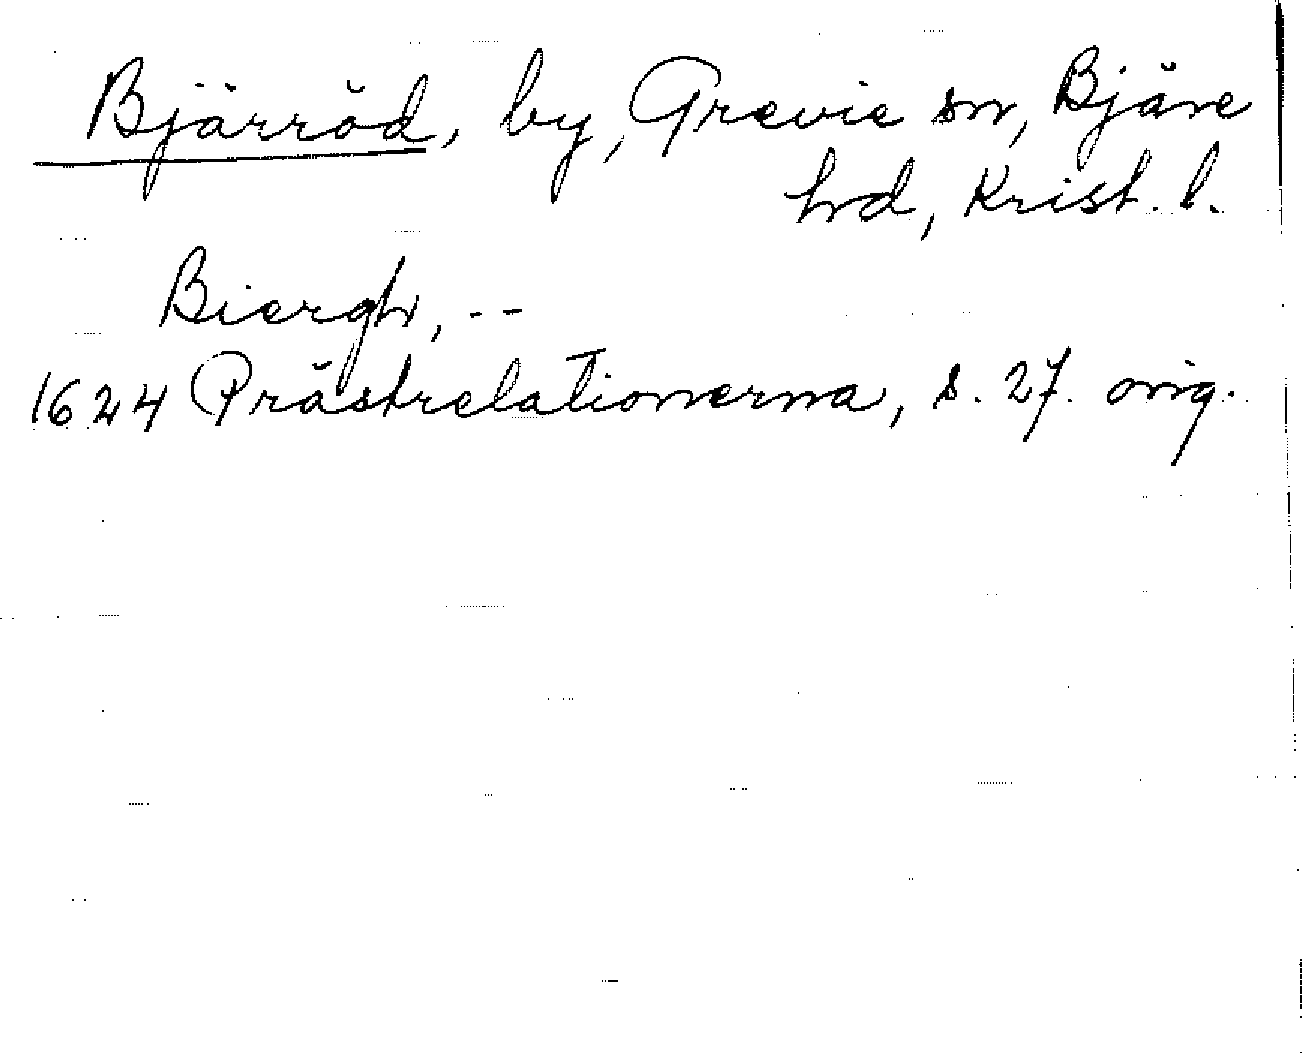 Bjärröd, by, Grevie sn, Bjäre
hd, Krist. l.
Biergh, --
1624 Prästrelationerna, s. 27. orig.